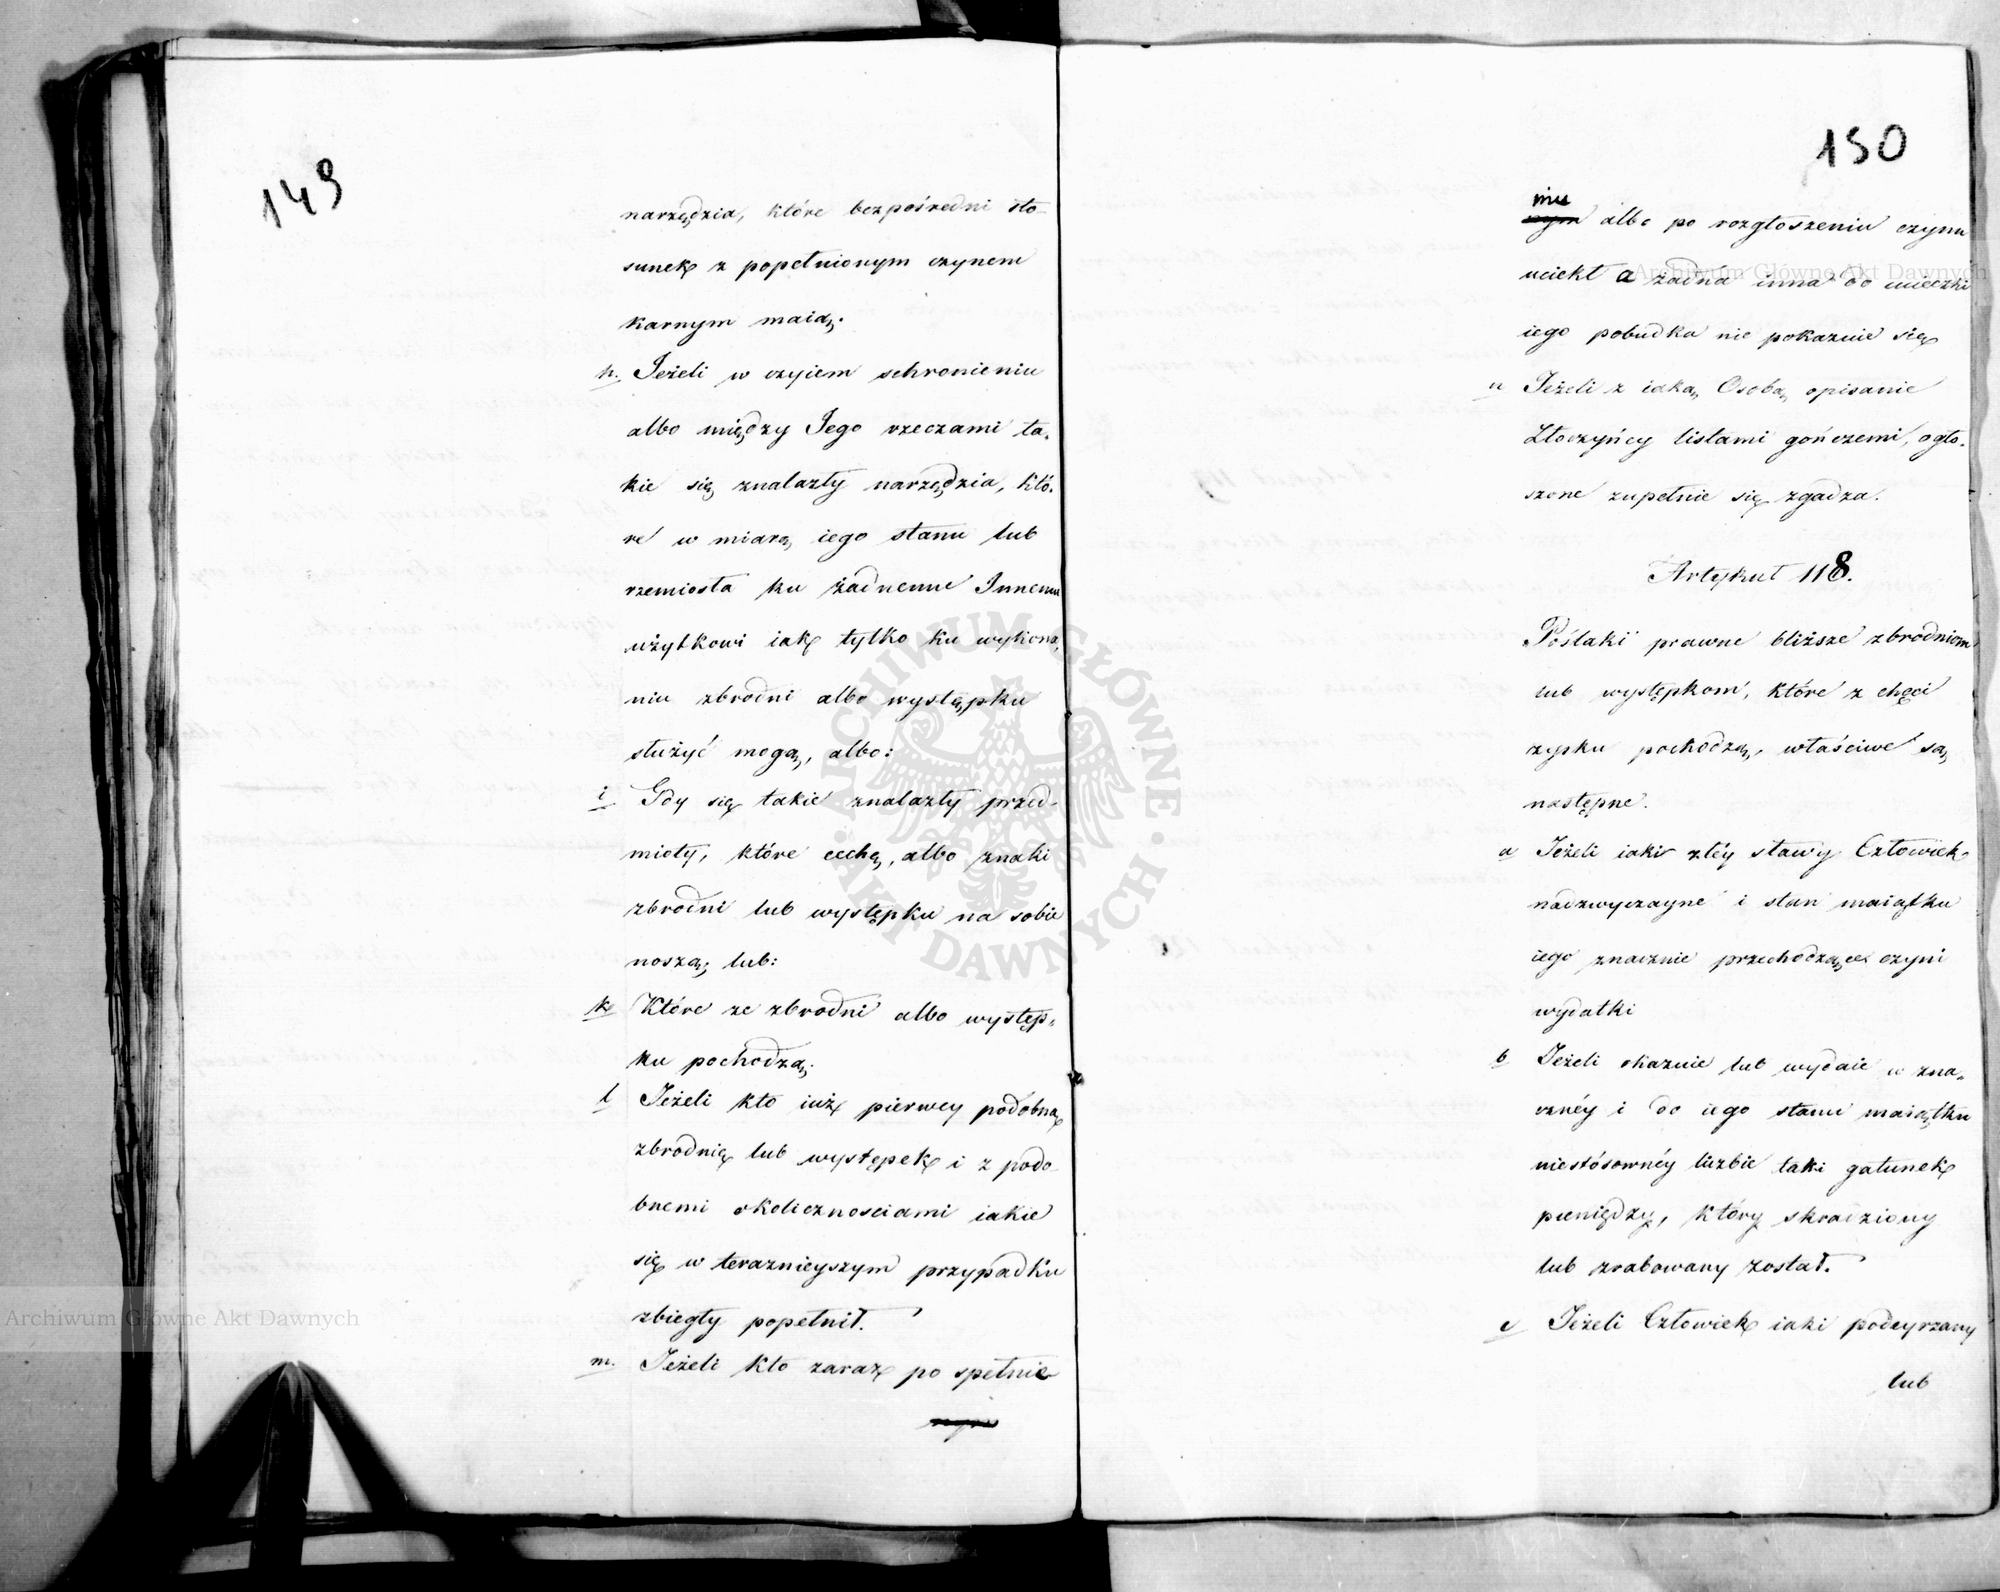 149
narzędzia, które bezpośredni sto-
sunek z popełnionym czynem
karnym maią.
h. Jeżeli w czyiem schronieniu
albo między Jego rzeczami ta-
kie się znalazły narzędzia, któ-
re w miarą iego stanu lub
rzemiosła ku żadnemu Innemu
użytkowi iak tylko ku wykona-
niu zbrodni albo występku
służyć mogą, albo:
i Gdy się takie znalazły przed-
mioty, które cechą, albo znaki
zbrodni lub występku na sobie
noszą; lub:
k Które ze zbrodni albo występ-
ku pochodzą;
l Jeżeli kto iuż pierwey podobną
zbrodnię lub występek i z podo-
bnemi okolicznosciami iakie
się w teraznieyszym przypadku
zbiegły popełnił.
m. Jeżeli kto zaraz po spełnie
150
niu
albo po rozgłoszeniu czynu
uciekł a żadna inna do ucieczki
iego pobudka nie pokazuie się
n Jeżeli z iaką Osobą opisanie
Złoczyńcy listami gończemi, ogło-
szone zupełnie się zgadza.
Artykuł 118.
Poślaki prawne bliższe zbrodniom
lub występkom, które z chęci
zysku pochodzą, właściwe są
następne.
a Jeżeli iaki złéy sławy Człowiek
nadzwyczayne i stan maiątku
iego znacznie przechodzące czyni
wydatki
b Jeżeli okazuie lub wydaie w zna-
cznéy i do iego stanu maiątku
niestósownéy liczbie taki gatunek
pieniędzy, który skradziony
lub zrabowany został.
c Jeżeli Człowiek iaki podeyrzany
lub
Archiwum Główne Akt Dawnych
Archiwum Główne Akt Dawnych
ARCHIWUM GŁÓWNE
AKT DAWNYCH